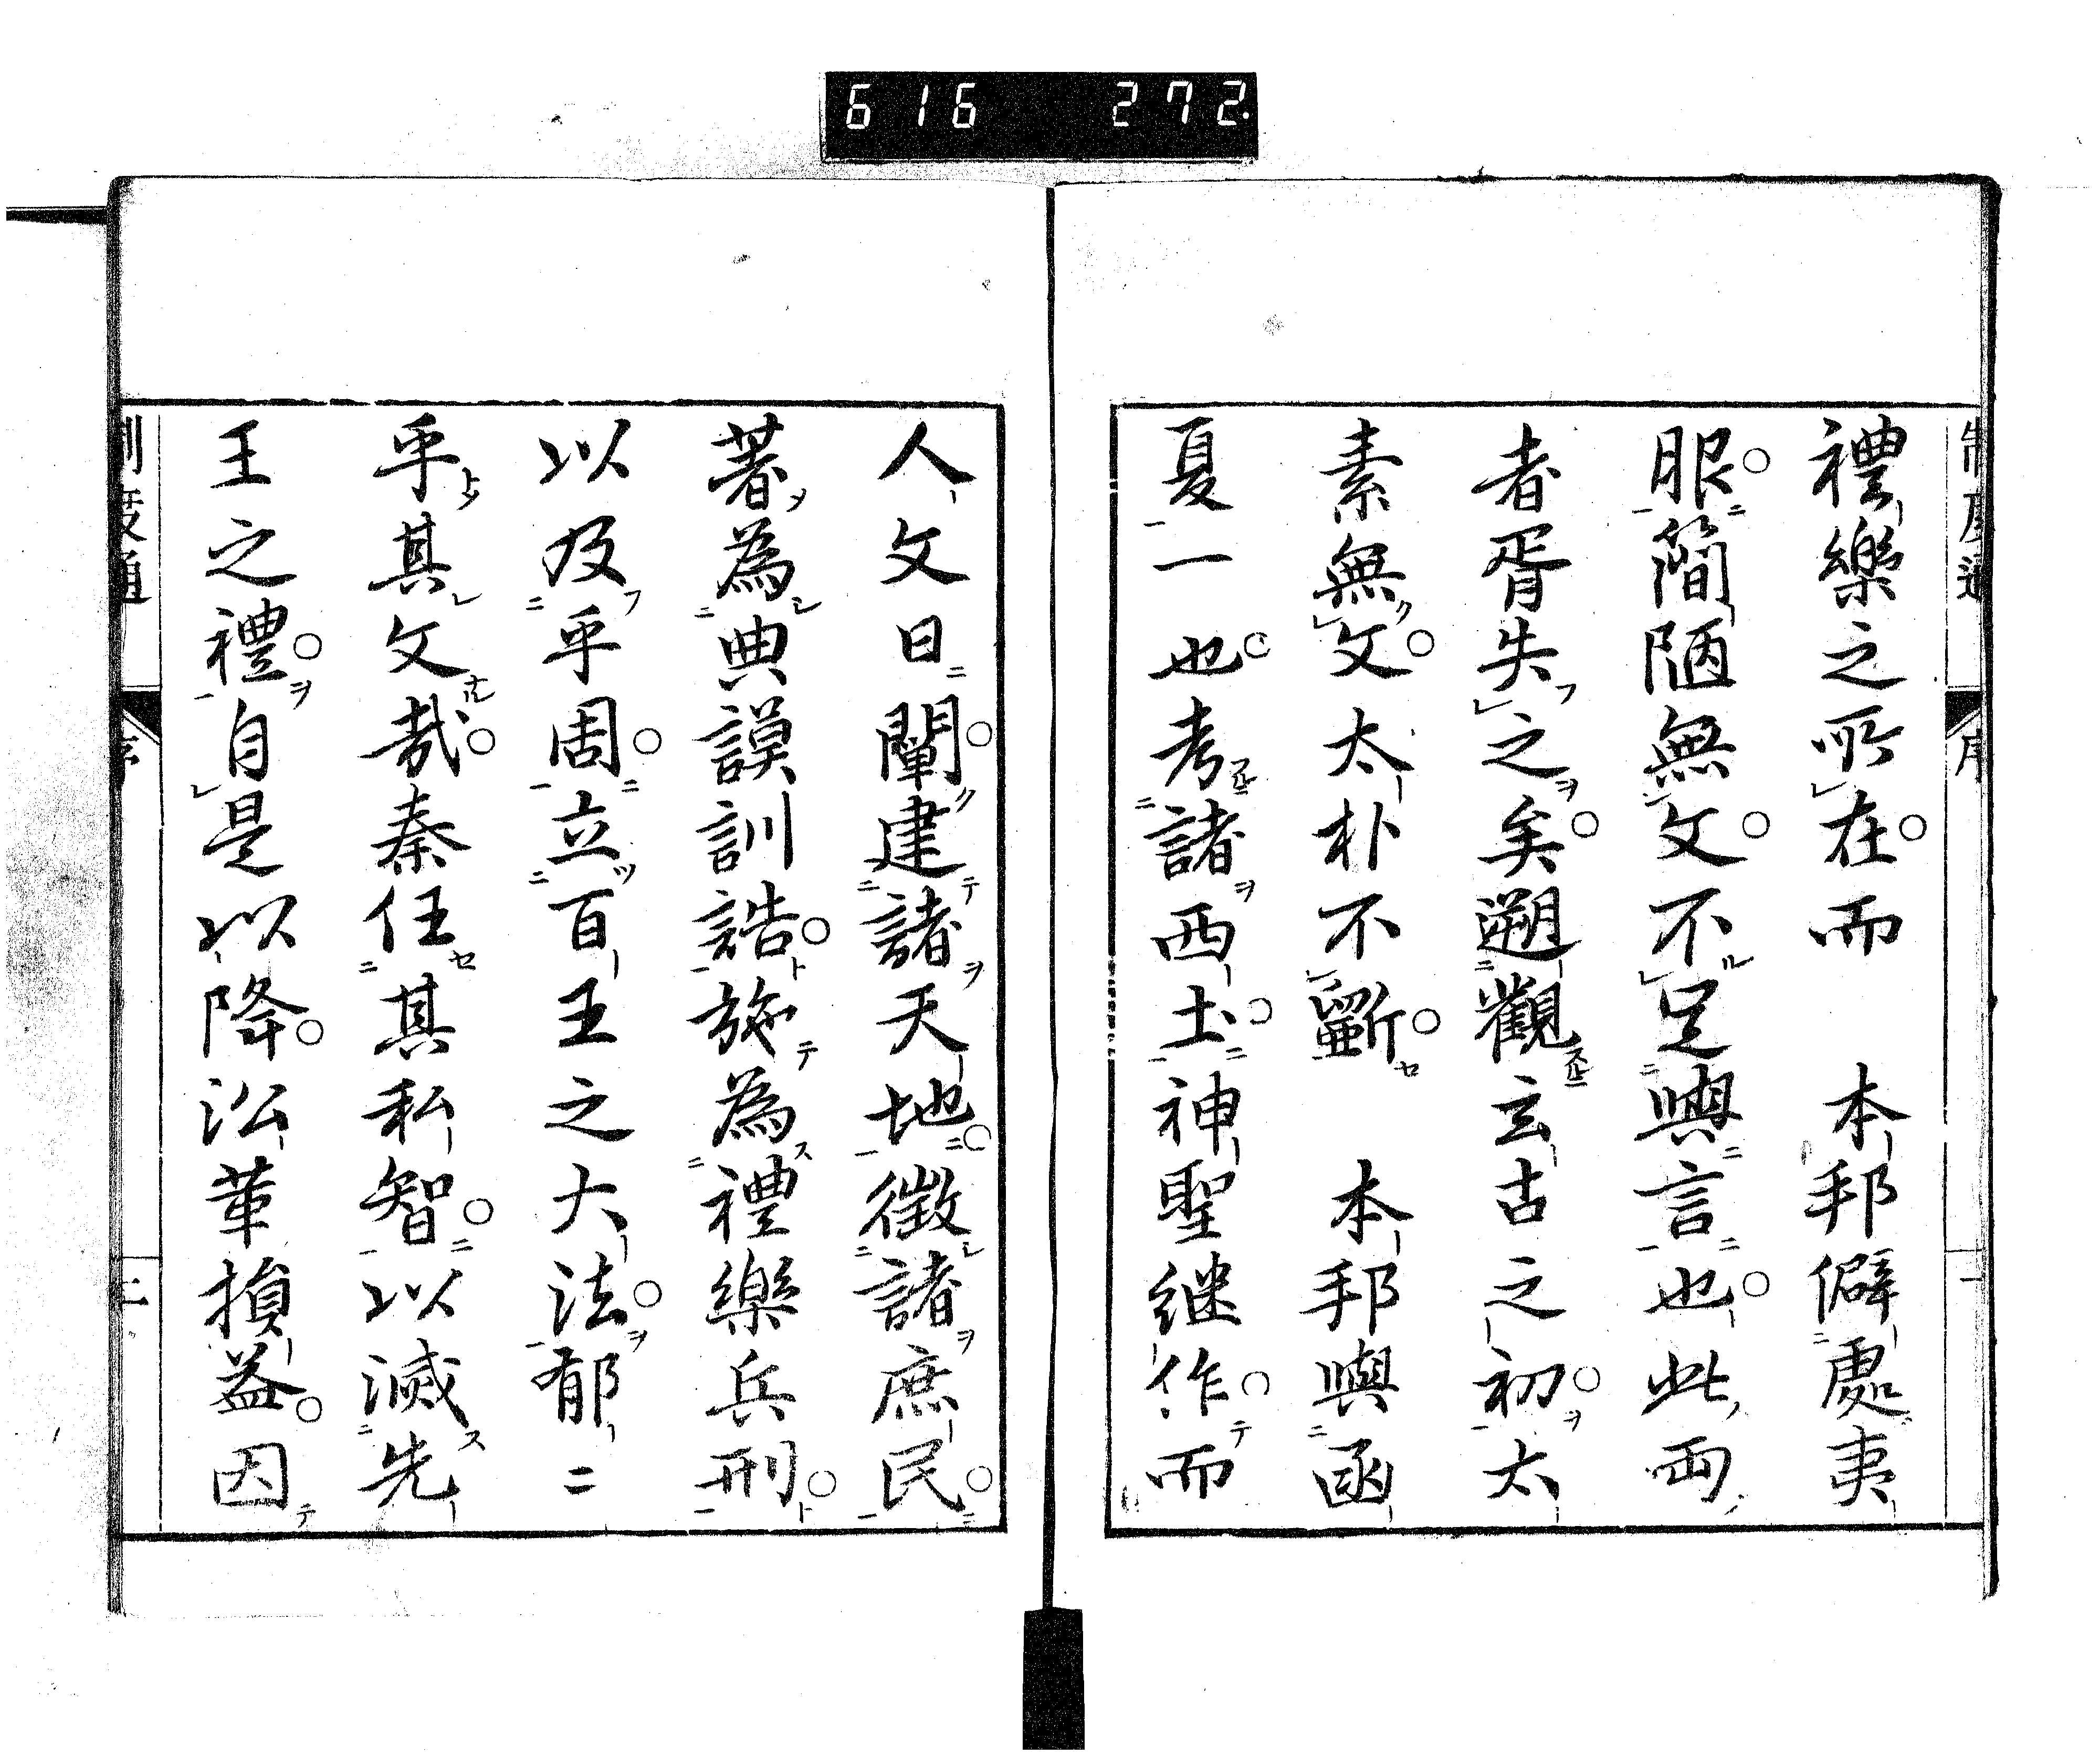 616 272.
制度通 序 一
禮樂之所在而 本邦僻處夷
服簡陋無文不足與言也此兩
者胥失之矣遡觀玄古之初太
素無文太朴不斲 本邦與函
夏一也考諸西土神聖継作而
人文日闡建諸天地徵諸庶民
著為典謨訓誥施為禮樂兵刑
以及乎周立百王之大法郁二
乎其文哉秦任其私智以滅先
王之禮自是以降㳂革損益因
制度通 序 二